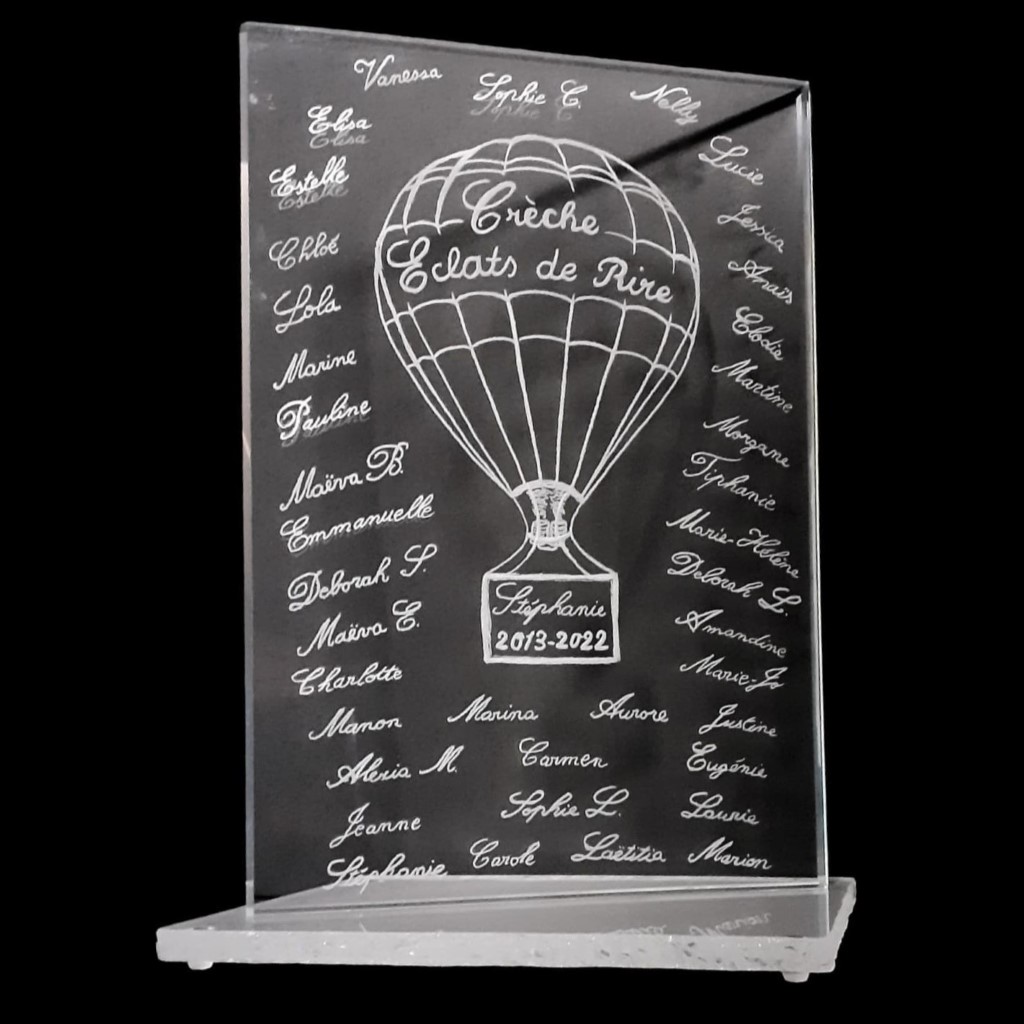 Vanessa
Sophie C.
Nelly
Elisa
Estelle
Chloé
Lola
Marine
Pauline
Maëva B.
Emmanuelle
Deborah S.
Maëva E.
Charlotte
Crèche
Eclats de Rire
Stéphanie
2013-2022
Lucie
Jessica
Anaïs
Elodie
Martine
Morgane
Tiphanie
Marie-Hélène
Deborah L.
Amandine
Marie-Jo
Manon Marina Aurore Justine
Alexia M. Carmen Eugénie
Jeanne Sophie L. Laurie
Stéphanie Carole Laëtitia Marion